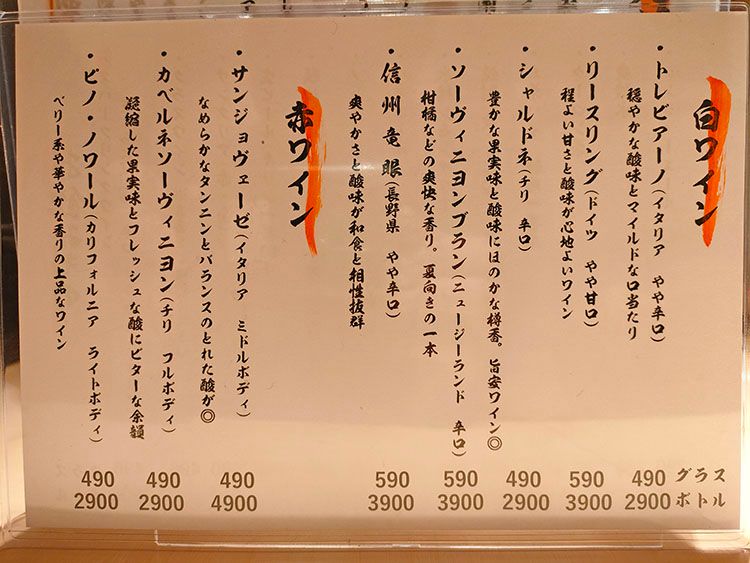 白ワイン
・トレビアーノ(イタリア　やや辛口)
穏やかな酸味とマイルドな口当たり
・リースリング(ドイツ　やや甘口)
程よい甘さと酸味が心地よいワイン
・シャルドネ(チリ　辛口)
豊かな果実味と酸味にほのかな樽香。旨安ワイン◎
・ソーヴィニヨンブラン(ニュージーランド　辛口)
柑橘などの爽快な香り。夏向きの一本
・信州竜眼(長野県　やや辛口)
爽やかさと酸味が和食と相性抜群
赤ワイン
・サンジョヴェーゼ(イタリア　ミドルボディ)
なめらかなタンニンとバランスのとれた酸が◎
・カベルネソーヴィニヨン(チリ　フルボディ)
凝縮した果実味とフレッシュな酸にビターな余韻
・ピノ・ノワール(カリフォルニア　ライトボディ)
ベリー系や華やかな香りの上品なワイン
490 490 490 590 590 490 590 490 グラス
2900 2900 4900 3900 3900 2900 3900 2900 ボトル